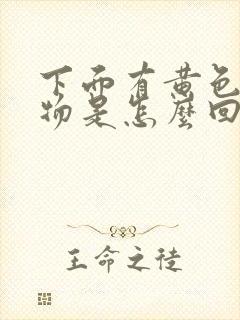 下面有黄色
物是怎麼回
王命之徒